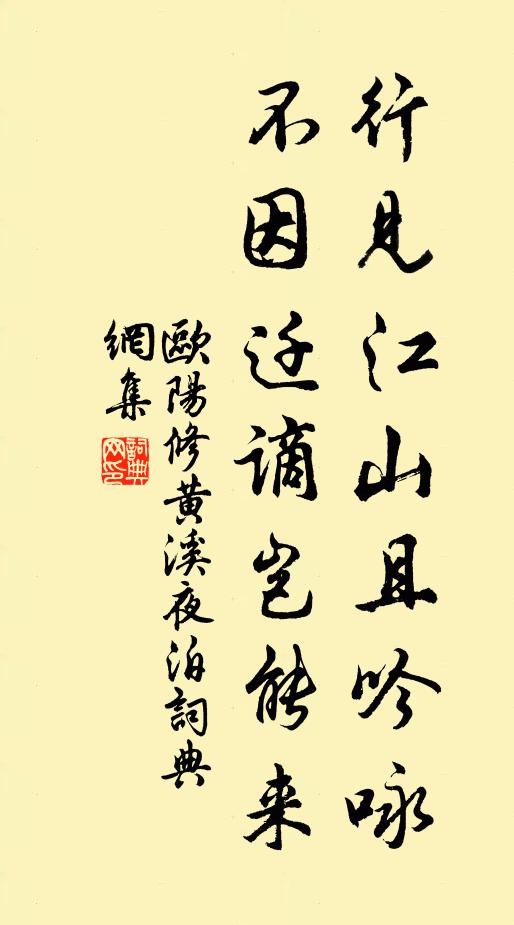 行見江山且吟咏
不因迁謫岂能来
歐陽修黄溪夜泊詞典
網集
詞典
网印